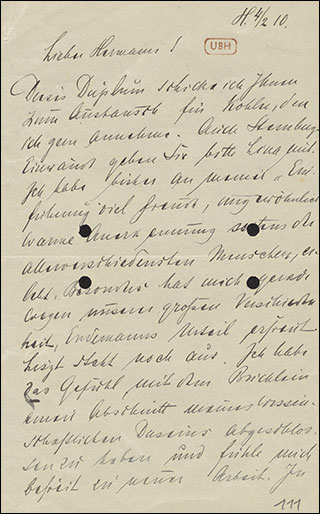 H. 4/2 10.
Lieber Hermann!
UBH
Dieses schicke ich Ihnen
zum Austausch für Kohler, den
ich gern annehme. Auch
Einwand geben Sie bitte Lina mit.
Ich habe bisher an meiner "Ein-
führung" viel Freude, ungewöhnlich
warme Anerkennung seitens der
allerverschiedensten Menschen, er-
lebt. Besonders hat mich gerade
wegen unserer großen Verschieden-
heit, Urteil erfreut
Liszt steht noch aus. Ich habe
das Gefühl mit dem Büchlein
einen Abschnitt meines wissen-
schaftlichen Daseins abgeschlos-
sen zu haben und fühle mich
befreit zu neuer Arbeit. In
111